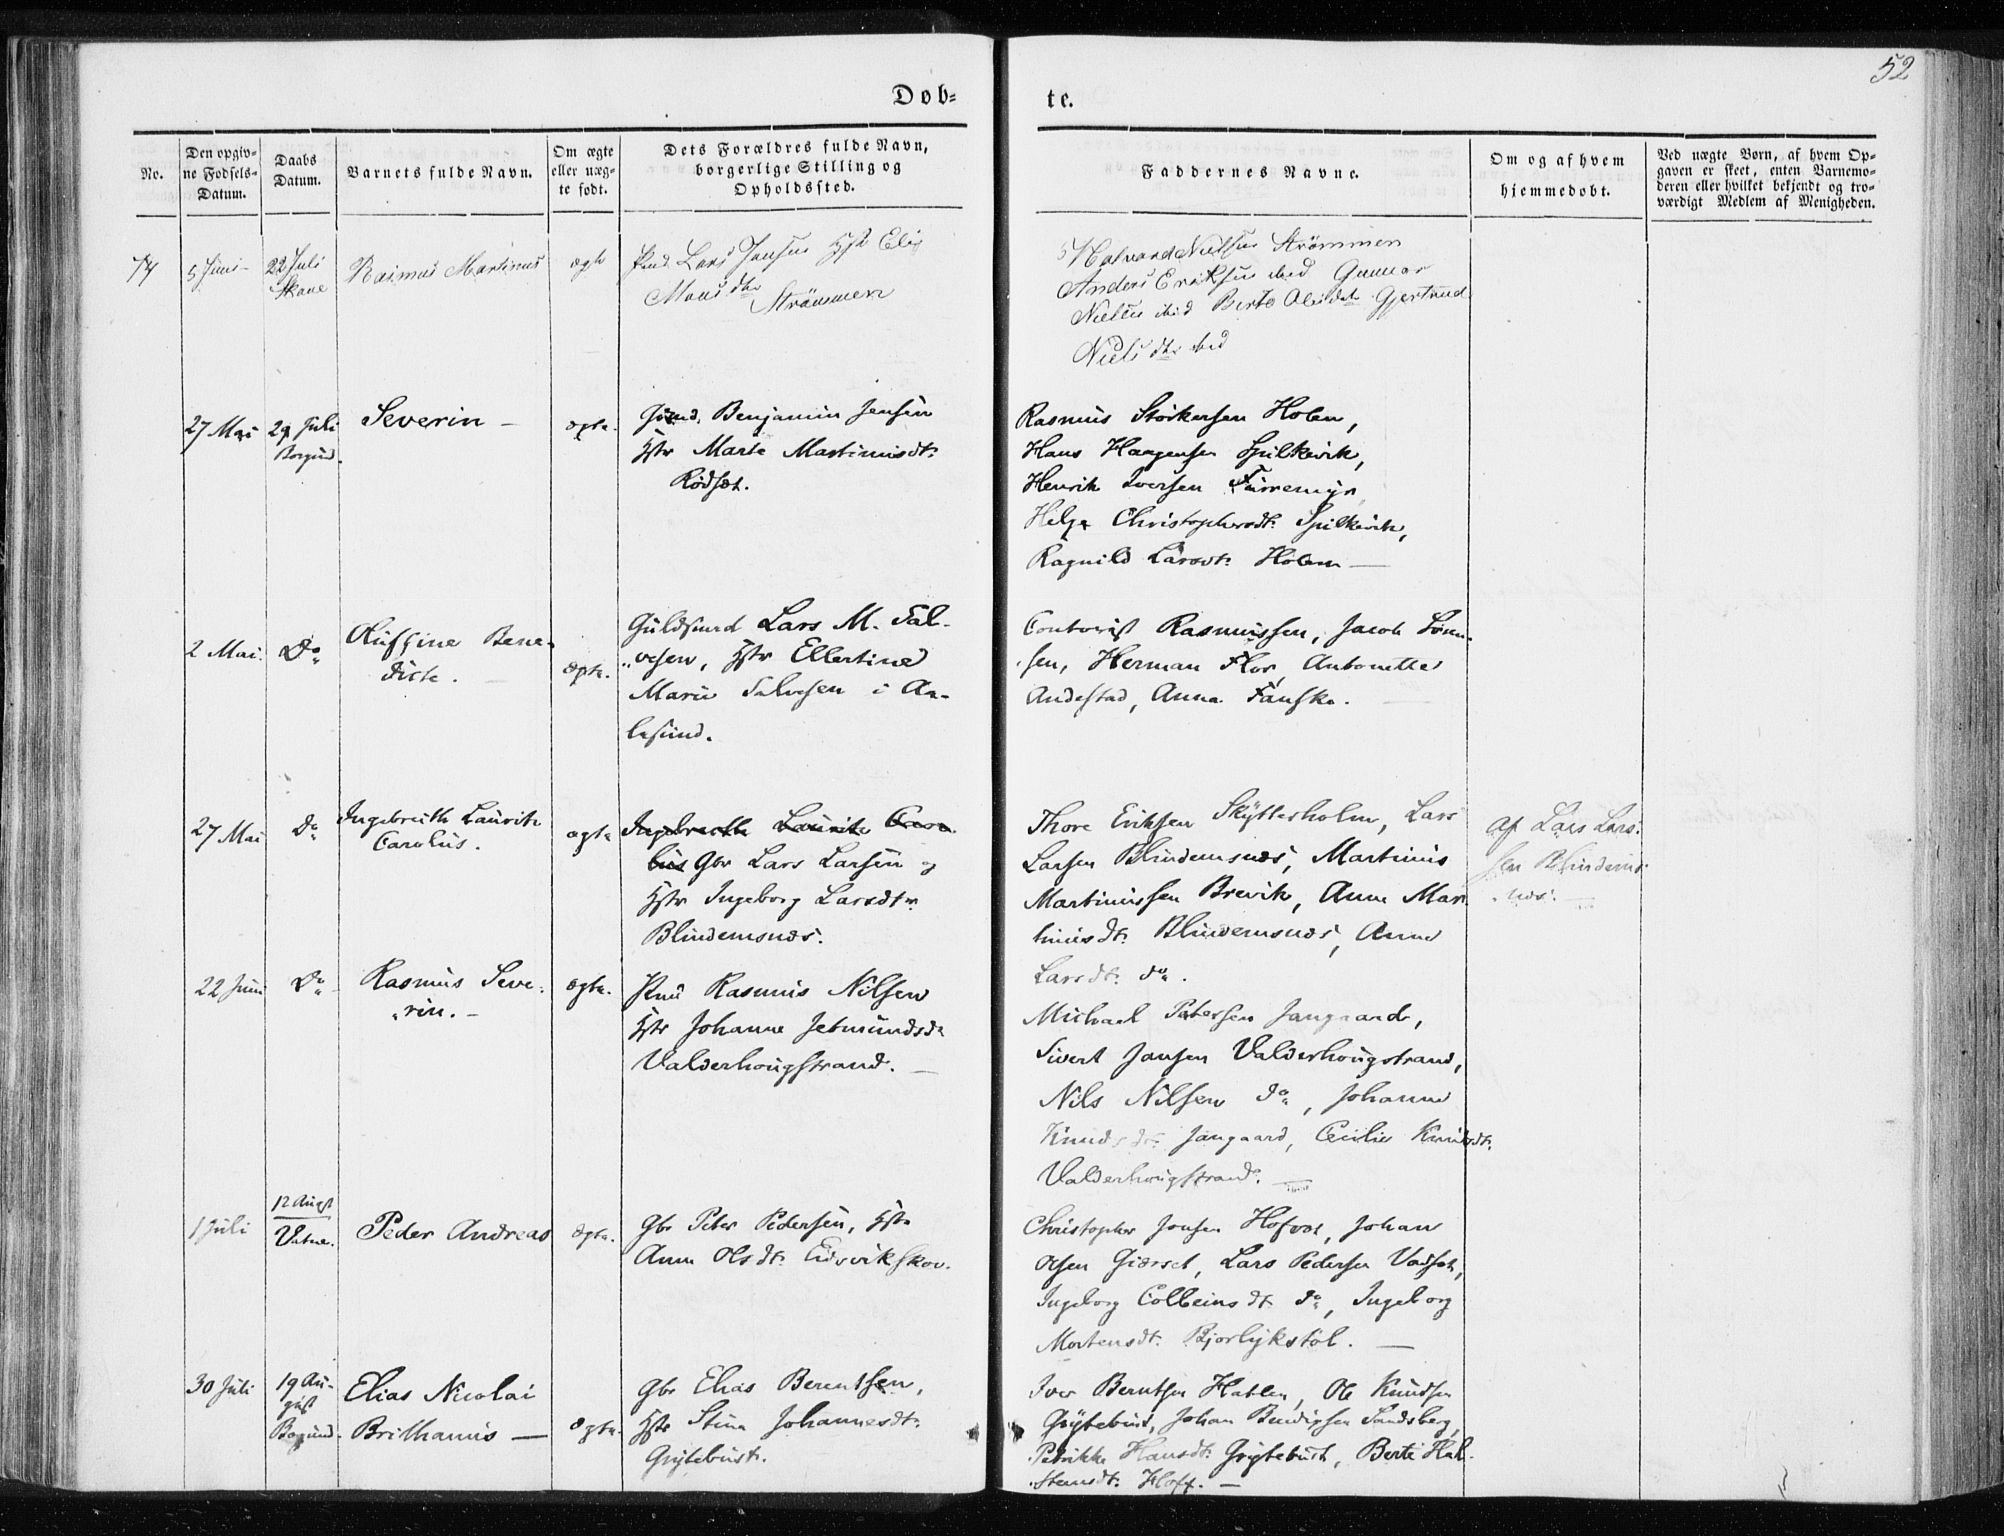 52
Døb-
te.
No.
Den opgiv-
ne Fødsels-
Datum.
Daabs
Datum.
Barnets fulde Navn.
Om ægte
eller uæg-
te født.
Dets Forældres fulde Navn,
borgerlige Stilling og
Opholdssted.
Faddernes Navne.
Om og af hvem
hjemmedøbt.
Ved uægte Børn, af hvem Op-
gaven er skeet, enten Barnemo-
deren eller hvilket bekjendt og tro-
værdigt Medlem af Menigheden.
74
5 Juni
22 Juli
Skaue
Rasmus Martinus
ægte
Lars Jensen Hst Elis
Mons dtr
Strömmen
Halvard Nielsen Strömmen
Anders Eriksen ibid Gunnar
Nielsen ibid Berte Olsdtr Gjertrud
Niels dtr ibid
27 Mai
29 Juli
Borgund.
Severin –
ægte.
Gmd. Benjamin Jensen
Hstr Marte Martinusdt.
Rödset.
Rasmus Störkersen Holen,
Hans Haagensen Spilkevik,
Henrik Iversen Furremyr,
Helge Christophersdt. Spilkevik,
Ragnild Larsdt. Holen —
2 Mai.
Do
Oluffine Bene-
dicte. –
ægte.
Guldsmed Lars M. Sal-
vesen, Hstr Ellertine
Marie Salvesen i Aa-
lesund.
Contorist Rasmussen, Jacob Sören-
sen, Herman Flor, Antonette
Andestad, Anna Fauske.
27 Mai
Do
Ingebreth Laurits
Carolus.
ægte
Ingebreth Laurits Caro
lus Gbr Lars Larsen og
Hstr Ingeborg Larsdtr
Blindemsnæs.
Thore Eriksen Skytterholm, Lars
Larsen Blindemsnæs, Martinus
Martinussen Brevik, Anne Mar-
tinusdt. Blindemsnæs, Anne
Larsdt. do.
Af Lars Lars-
sen Blindems-
næs. —
22 Juni
Do
Rasmus Seve-
rin. –
ægte.
Rasmus Nilsen
Hstr Johanne Jetmundsdt
Valderhougstrand. —
Michael Petersen Jangaard,
Sivert Jansen Valderhougstrand,
Nils Nilsen do, Johanne
Knudsdt. Jangaard, Cecilie Knudsdt.
Valderhougstrand. —
1 Juli
12 Augst
Vatne.
Peder Andreas
ægte.
Gbr Peter Pedersen, Hstr
Anne Olsdt. Eidsvikskov.
Christopher Jonsen Hofset, Johan
Olsen Giærset, Lars Pedersen Vadset,
Ingeborg Colbeinsdt. do, Ingeborg
Mortensdt. Bjorlykstöl. —
30 Juli
19 Au-
gust
Borgund.
Elias Nicolai
Brithanus —
ægte.
Gbr Elias Berentsen,
Hstr Stina Johannesdt.
Grytebust.
Iver Berntsen Hatlen, Ole Knudsen
Grytebust, Johan Bendigsen Sandsberg,
Petrikke Hansdt. Grytebust, Berte Hal-
stensdt. Hoff. —